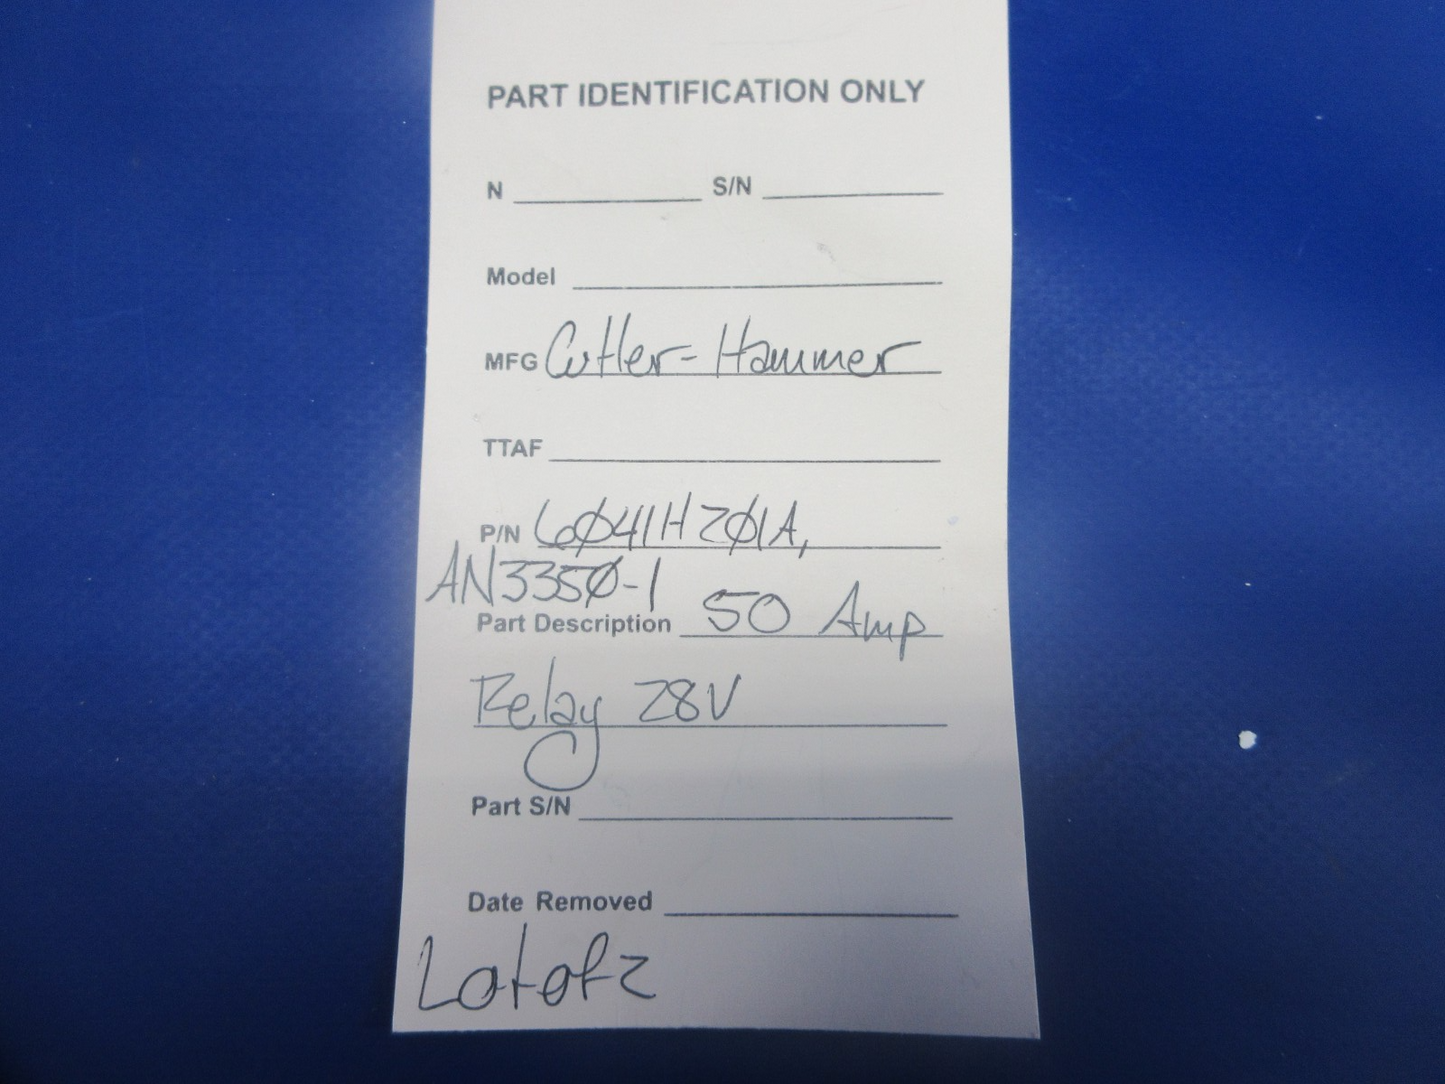 PART IDENTIFICATION ONLY
N S/N
Model
MFG Cutler-Hammer
TTAF
P/N 6Ø41H2Ø1A,
AN335Ø-1
Part Description 50 Amp
Relay 28V
Part S/N
Date Removed
Lot of 2